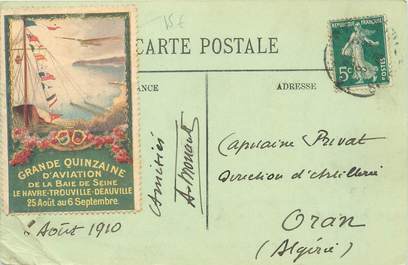 15€
CARTE POSTALE
RÉPUBLIQUE FRANÇAISE
5c
POSTES
ADRESSE
GRANDE QUINZAINE
D'AVIATION
DE LA BAIE DE SEINE
LE HAVRE-TROUVILLE-DEAUVILLE
25 Août au 6 Septembre.
Août 1910
Amitiés
Capitaine Privat
Direction d'Artillerie
Oran
(Algérie)